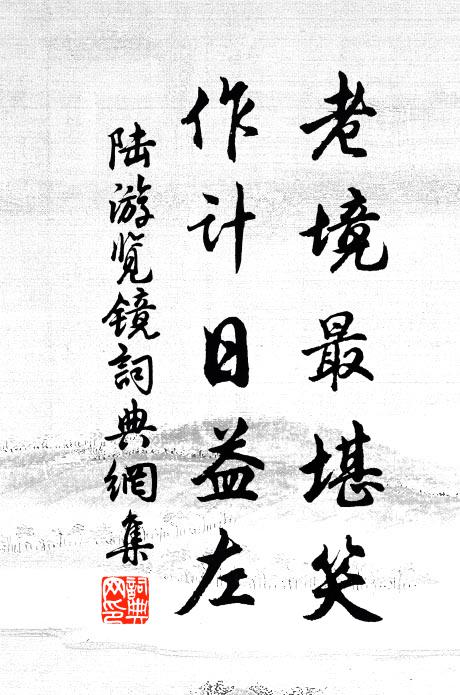 老境最堪笑
作计日益左
陆游览镜詞典網集
詞典网印